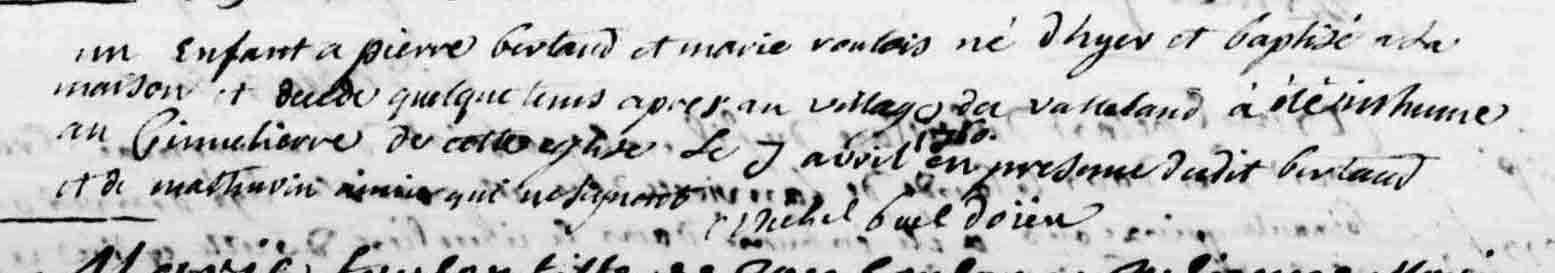 un Enfant a pierre bertaud et marie voulois né d'hyer et baptisé a la
maison et decede quelque tems apres au village de valteland à été inhume
au Cimetierre de cette eglise Le 7 avril 1780. en presence dudit bertaud
et de mathurin qui ne signent
Michel doïen